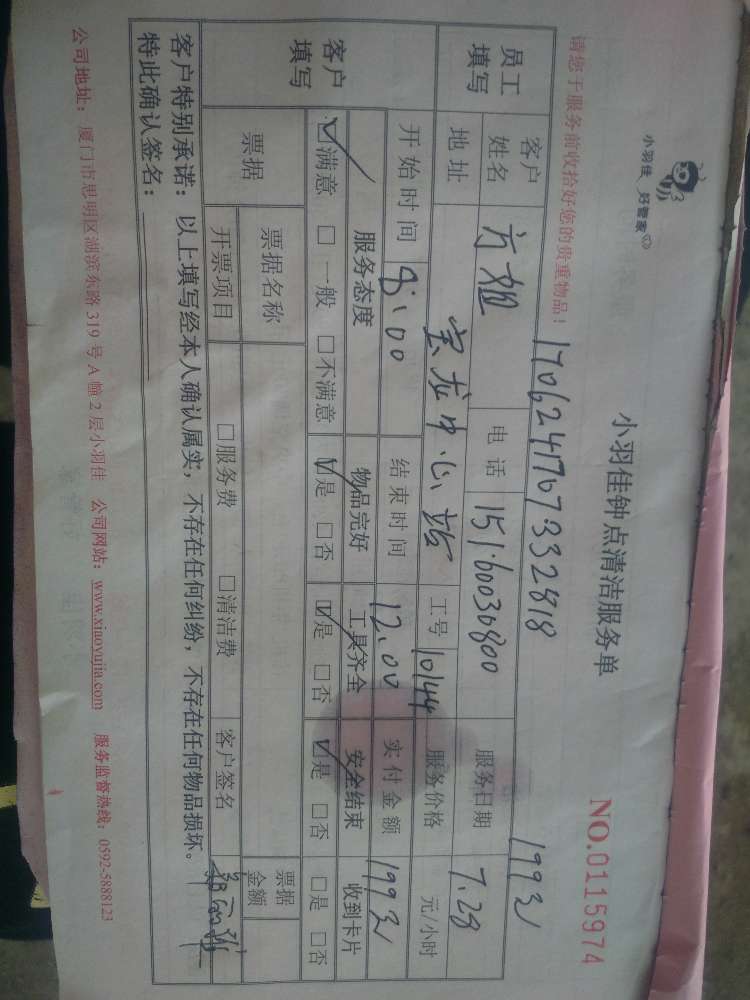 小羽佳 好管家
小羽佳钟点清洁服务单
NO.0115974
请您于服务前收拾好您的贵重物品!
199元
员工填写
客户姓名 方姐 电话 15160036800 服务日期 7.28
地址 宝龙中心站 工号 10144 服务价格 元/小时
开始时间 8:00 结束时间 12:00 实付金额 199元
客户填写
服务态度 物品完好 工具齐全 安全结束 收到卡片
☑满意 □一般 □不满意 ☑是 □否 ☑是 □否 ☑是 □否 □是 □否
票据 票据名称 票据金额
开票项目 □服务费 □清洁费 客户签名
客户特别承诺: 以上填写经本人确认属实,不存在任何纠纷,不存在任何物品损坏。
特此确认签名:
公司地址: 厦门市思明区湖滨东路 319 号 A 幢 2 层小羽佳 公司网站: www.xiaoyujia.com 服务监督热线: 0592-5888123